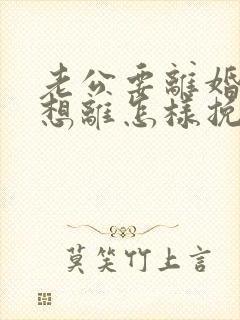 老公要離婚
想離怎樣挽
莫笑竹上言